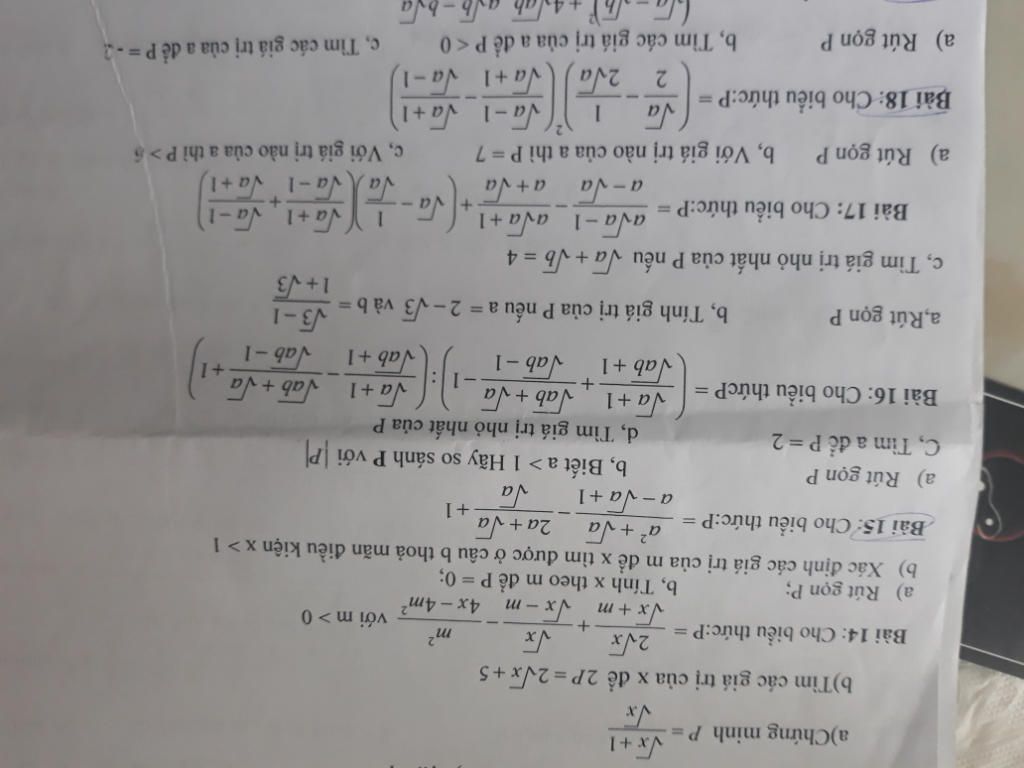 a)Chứng minh P = \frac{\sqrt{x}+1}{\sqrt{x}}
b)Tìm các giá trị của x để 2P = 2\sqrt{x}+5
Bài 14: Cho biểu thức:P = \frac{2\sqrt{x}}{\sqrt{x}+m} + \frac{\sqrt{x}}{\sqrt{x}-m} - \frac{m^2}{4x-4m^2} với m > 0
a) Rút gọn P; b, Tính x theo m để P = 0;
b) Xác định các giá trị của m để x tìm được ở câu b thoả mãn điều kiện x > 1
Bài 15: Cho biểu thức:P = \frac{a^2+\sqrt{a}}{a-\sqrt{a}+1} - \frac{2a+\sqrt{a}}{\sqrt{a}} + 1
a) Rút gọn P b, Biết a > 1 Hãy so sánh P với |P|
C, Tìm a để P = 2 d, Tìm giá trị nhỏ nhất của P
Bài 16: Cho biểu thứcP = \left(\frac{\sqrt{a}+1}{\sqrt{ab}+1} + \frac{\sqrt{ab}+\sqrt{a}}{\sqrt{ab}-1} - 1\right) : \left(\frac{\sqrt{a}+1}{\sqrt{ab}+1} - \frac{\sqrt{ab}+\sqrt{a}}{\sqrt{ab}-1} + 1\right)
a,Rút gọn P b, Tính giá trị của P nếu a = 2 - \sqrt{3} và b = \frac{\sqrt{3}-1}{1+\sqrt{3}}
c, Tìm giá trị nhỏ nhất của P nếu \sqrt{a}+\sqrt{b} = 4
Bài 17: Cho biểu thức:P = \frac{a\sqrt{a}-1}{a-\sqrt{a}} - \frac{a\sqrt{a}+1}{a+\sqrt{a}} + \left(\sqrt{a}-\frac{1}{\sqrt{a}}\right)\left(\frac{\sqrt{a}+1}{\sqrt{a}-1} + \frac{\sqrt{a}-1}{\sqrt{a}+1}\right)
a) Rút gọn P b, Với giá trị nào của a thì P = 7 c, Với giá trị nào của a thì P > 6
Bài 18: Cho biểu thức:P = \left(\frac{\sqrt{a}}{2} - \frac{1}{2\sqrt{a}}\right)^2 \left(\frac{\sqrt{a}-1}{\sqrt{a}+1} - \frac{\sqrt{a}+1}{\sqrt{a}-1}\right)
a) Rút gọn P b, Tìm các giá trị của a để P < 0 c, Tìm các giá trị của a để P = -2
(\sqrt{a}-\sqrt{b})^2+4\sqrt{ab} a\sqrt{b}-b\sqrt{a}